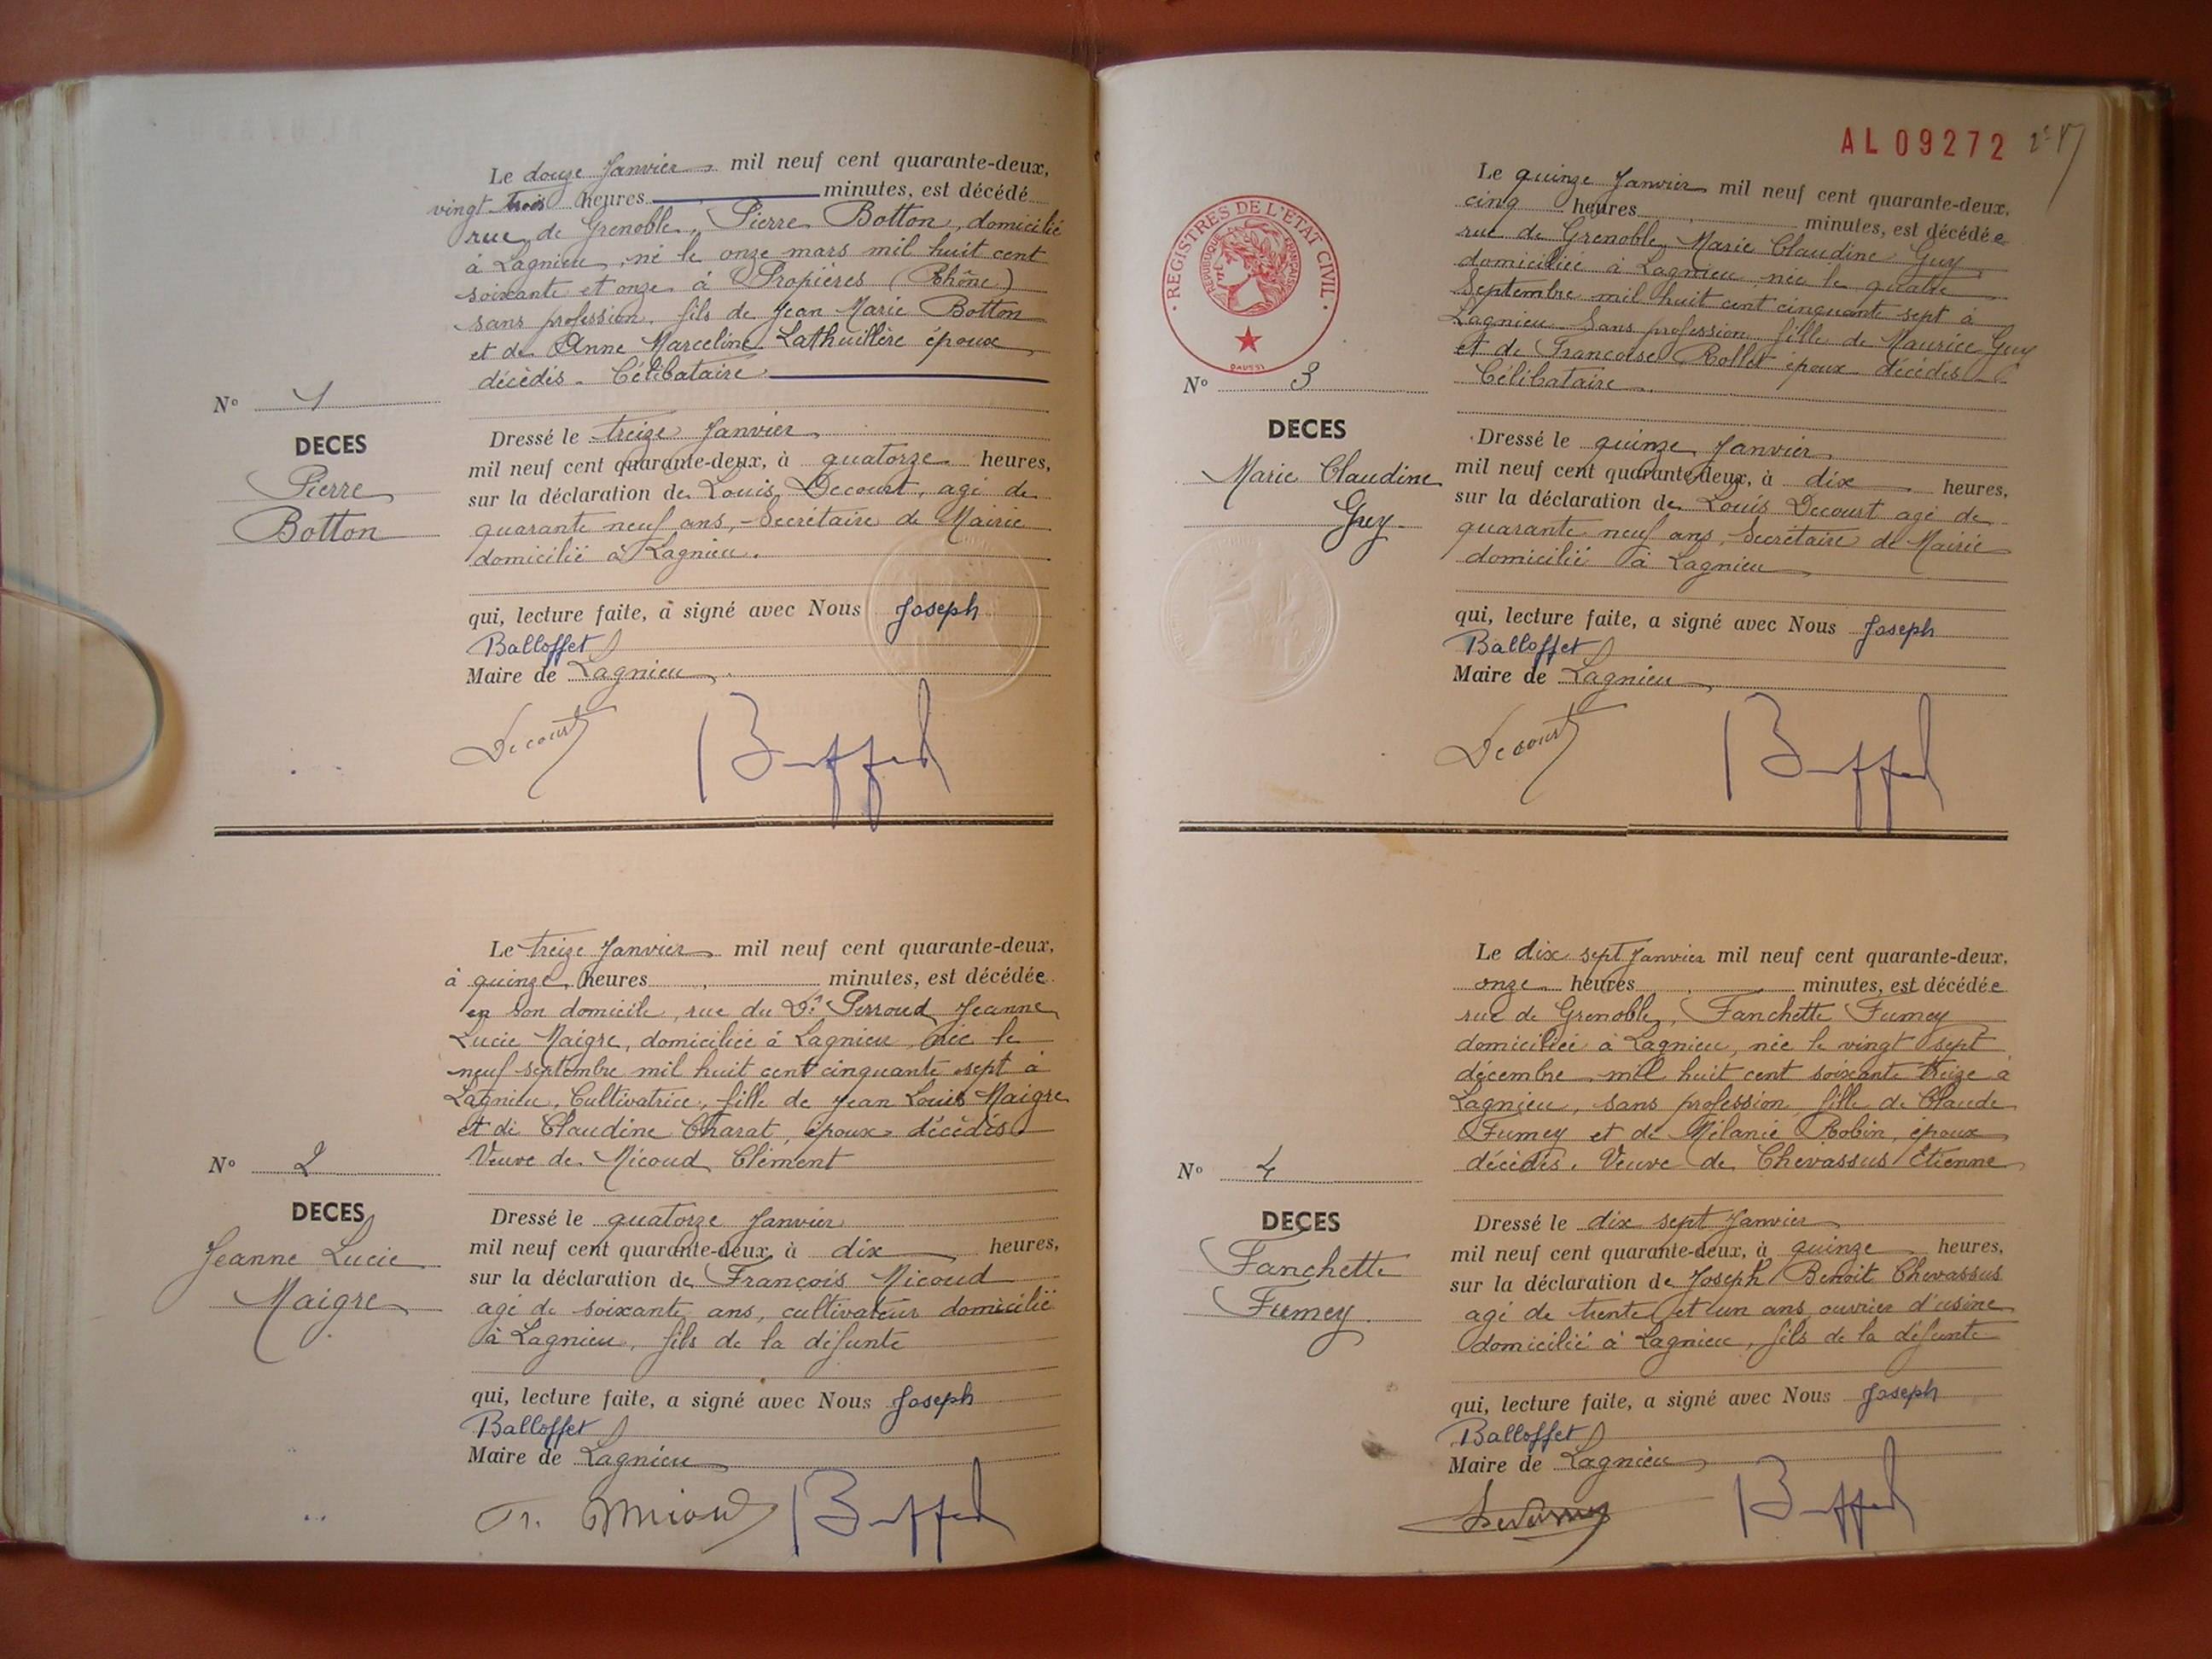 Le douze Janvier mil neuf cent quarante-deux,
vingt trois heures minutes, est décédé
rue de Grenoble, Pierre Botton, domicilié
à Lagnieu, né le onze mars mil huit cent
soixante et onze à Propières (Rhône)
sans profession. fils de Jean Marie Botton
et de Anne Marceline Lathuillère époux
décédés. Célibataire
N° 1
DECES
Pierre
Botton
Dressé le treize Janvier
mil neuf cent quarante-deux, à quatorze heures,
sur la déclaration de Louis Decourt, agé de
quarante neuf ans, Secrétaire de Mairie
domicilié à Lagnieu.
qui, lecture faite, a signé avec Nous Joseph
Balloffet
Maire de Lagnieu
Decourt
Le treize Janvier mil neuf cent quarante-deux,
à quinze heures minutes, est décédée
en son domicile, rue du Dr Perroud Jeanne
Lucie Maigre, domiciliée à Lagnieu, née le
neuf septembre mil huit cent cinquante sept à
Lagnieu, Cultivatrice, fille de Jean Louis Maigre
et de Claudine Charat, époux décédés
Veuve de Micoud Clément
N° 2
DECES
Jeanne Lucie
Maigre
Dressé le quatorze Janvier
mil neuf cent quarante-deux, à dix heures,
sur la déclaration de François Micoud
agé de soixante ans, cultivateur domicilié
à Lagnieu, fils de la défunte
qui, lecture faite, a signé avec Nous Joseph
Balloffet
Maire de Lagnieu
AL 09272
REGISTRES DE L'ETAT CIVIL
REPUBLIQUE FRANÇAISE
Le quinze Janvier mil neuf cent quarante-deux,
cinq heures minutes, est décédée
rue de Grenoble, Marie Claudine Guy
domiciliée à Lagnieu née le quatre
Septembre mil huit cent cinquante sept à
Lagnieu Sans profession fille de Maurice Guy
et de Francoise Rollet époux décédés
Célibataire
N° 3
DECES
Marie Claudine
Guy
Dressé le quinze Janvier
mil neuf cent quarante-deux, à dix heures,
sur la déclaration de Louis Decourt agé de
quarante neuf ans, Secrétaire de Mairie
domicilié à Lagnieu
qui, lecture faite, a signé avec Nous Joseph
Balloffet
Maire de Lagnieu
Decourt
Le dix sept Janvier mil neuf cent quarante-deux,
onze heures minutes, est décédée
rue de Grenoble, Fanchette Fumey
domiciliée à Lagnieu, née le vingt sept
décembre mil huit cent soixante treize à
Lagnieu, sans profession, fille de Claude
Fumey et de Mélanie Robin, époux
décédés. Veuve de Chevassus Etienne
N° 4
DECES
Fanchette
Fumey
Dressé le dix sept Janvier
mil neuf cent quarante-deux, à quinze heures,
sur la déclaration de Joseph Benoit Chevassus
agé de trente et un ans ouvrier d'usine
domicilié à Lagnieu, fils de la défunte
qui, lecture faite, a signé avec Nous Joseph
Balloffet
Maire de Lagnieu